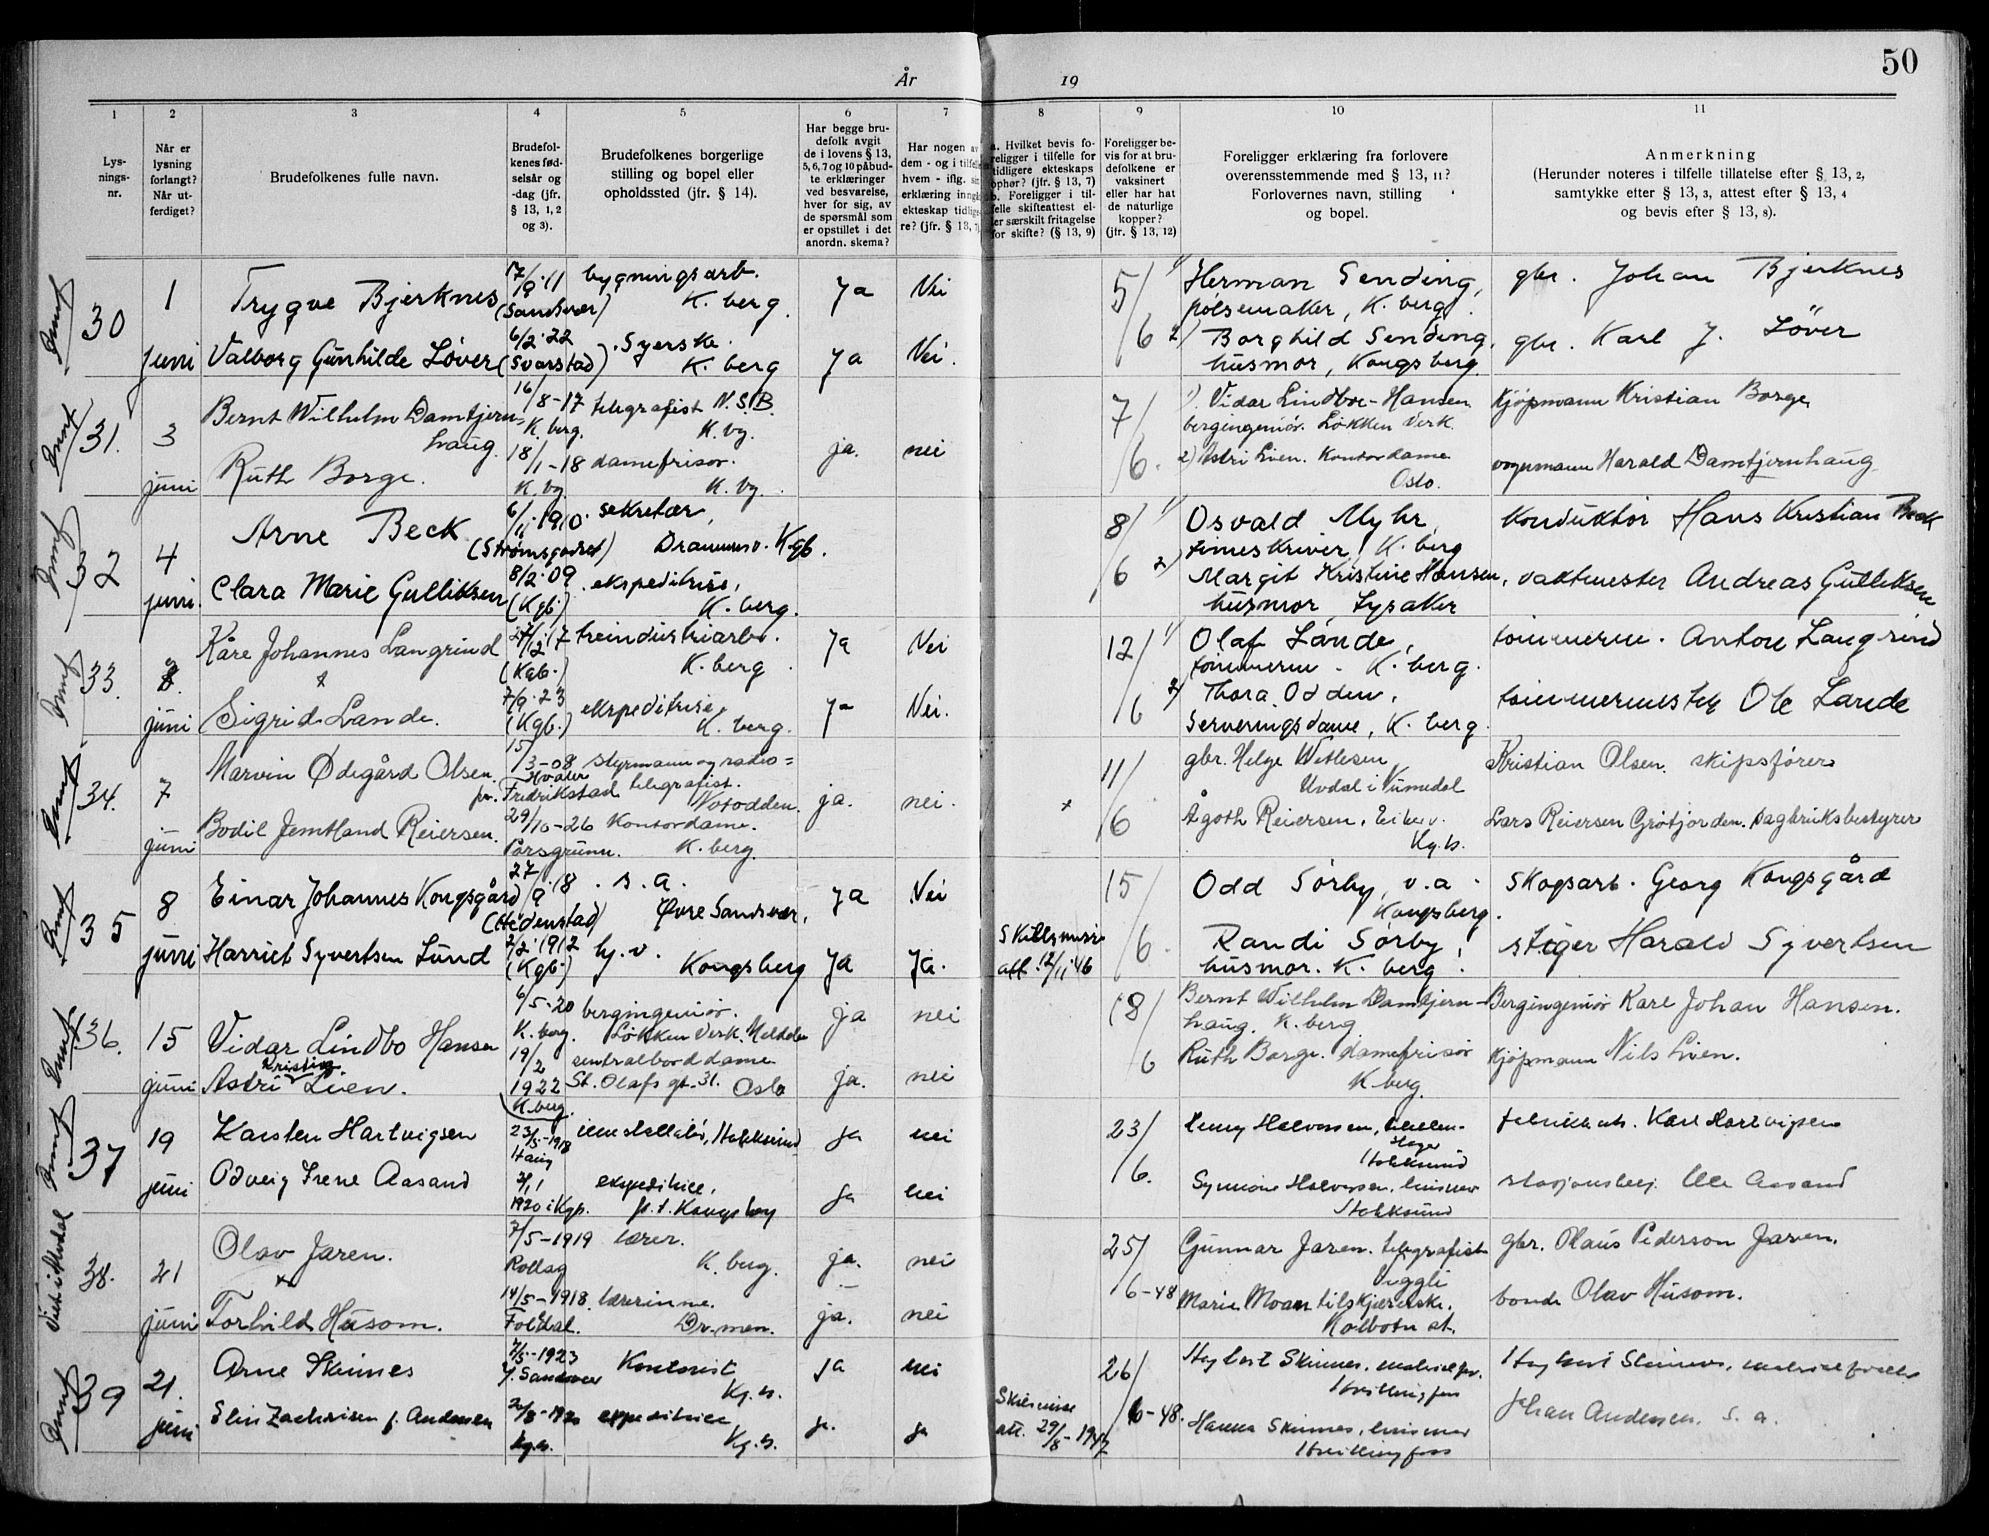 50
År 19
1 2 3 4 5 6 7 8 9 10 11
Lys-
nings-
nr.
Når er
lysning
forlangt?
Når ut-
ferdiget?
Brudefolkenes fulle navn.
Brudefol-
kenes fød-
selsår og
-dag (jfr.
§ 13, 1, 2
og 3).
Brudefolkenes borgerlige
stilling og bopel eller
opholdssted (jfr. § 14).
Har begge bru-
defolk avgit
de i lovens § 13,
5, 6, 7 og 10 påbud-
te erklæringer
ved besvarelse,
hver for sig, av
de spørsmål som
er opstillet i det
anordn. skema?
Har nogen av
dem - og i tilfelle
hvem - iflg. sin
erklæring inngå
ekteskap tidlige-
re? (jfr. § 13, 7)
a. Hvilket bevis fo-
religger i tilfelle for
tidligere ekteskaps
ophør? (jfr. § 13, 7)
b. Foreligger i til-
felle skifteattest el-
ler særskilt fritagelse
for skifte? (§ 13, 9)
Foreligger be-
vis for at bru-
defolkene er
vaksinert
eller har hat
de naturlige
kopper?
(jfr. § 13, 12)
Foreligger erklæring fra forlovere
overensstemmende med § 13, 11?
Forlovernes navn, stilling
og bopel.
Anmerkning
(Herunder noteres i tilfelle tillatelse efter § 13, 2,
samtykke efter § 13, 3, attest efter § 13, 4
og bevis efter § 13, 8).
30 1 Trygve Bjerknes 17/9.11 bygningsarb. Ja Nei 5/ 1) Herman Sending, gbr. Johan Bjerknes
(Sandsvær) K. berg. pølsemaker, K. berg.
juni Valborg Gunhilde Løver 6/2.22 Syerske. Ja Nei. 6 2) Borghild Sending, gbr. Karl J. Løver
(Svarstad) K. berg husmor, Kongsberg.
31. 3 Bernt Wilhelm Damtjern- 16/8-17 telegrafist N.S.B. 7/ 1). Vidar Lindboe-Hansen Kjøpmann Kristian Borge
haug. K. berg. K. bg. ja. nei bergingeniør. Løkken Verk.
juni Ruth Borge. 18/1-18 damefrisør. 6. 2) Astri Lien. Kontordame vognmann Harald Damtjernhaug
K. bg. K. bg. Oslo.
32 4 Arne Beck 6/11.1910. sekretær, 8/ 1) Osvald Myhr, Konduktør Hans Kristian Beck
(Strømsgodset) Drammensv. Kgb. timeskriver, K. berg
juni. Clara Marie Gulliksen 8/2.09 ekspeditrise, 6 2) Margit Kristine Hansen, vaktmester Andreas Gulliksen
(Kgb.) K. berg. husmor, Lysaker
33. 8. Kåre Johannes Langrind treindustriarb. Ja Nei 12/ 1) Olaf Lande, tømmerm. Anton Langrind
(Kgb.) K. berg. tømmerm. K. berg.
juni Sigrid Lande. 7/9.23 ekspeditrise, Ja Nei. 6 2) Thora Odden, tømmermester Ole Lande
(Kgb.) K. berg. Serveringsdame, K. berg.
34. 7 Marvin Ødegård Olsen. 15/3-08 styrmann og radio= 11/ gbr. Helge Vetlesen Kristian Olsen. skipsfører
Hvaler
pr. Fredrikstad telegrafist. Notodden. ja. nei. Uvdal i Numedal
juni Bodil Jemtland Reiersen. 29/10-26 Kontordame. 6 Ågoth Reiersen, Lars Reiersen Grøtjorden. Dagbruksbestyrer
Porsgrunn. K. berg. Kg.b.
35 8 Einar Johannes Kongsgård 27/9.18 s. a. Ja Nei 15/ Odd Sørby, v.a. Skogsarb. Georg Kongsgård
(Hedenstad) Øvre Sandsvær, Kongsberg.
juni Harriet Syvertsen Lund 2/2.1912 hj. v. Ja Ja. att. 12/11.46 6. Randi Sørby, stiger Harald Syvertsen
(Kgb.) Kongsberg husmor. K. berg.
36. 15 Vidar Lindbo Hansen 6/5-20 bergingeniør. ja nei 18/ Bernt Wilhelm Damtjern- Bergingeniør Karl Johan Hansen.
K. berg. Løkken Verk. Meldalen haug. K. berg
Kristin
juni Astri Lien. 19/2 sentralborddame ja. nei 6 Ruth Borge. damefrisør Kjøpmann Nils Lien.
1922 St. Olafs gt. 31. Oslo K. berg.
K. berg.
37 19 Karsten Hartvigsen 23/5-1918 Hokksund ja nei 23/ Henny Halvorsen, Karl Hartvigsen
Haug Hokksund
juni Odveig Irene Aasand 2/11 ekspeditrice, ja nei 6. Synnöve Halvorsen, husmor Ole Aasand
1920 i Kgb. p.t. Kongsberg Hokksund
Viet i Alvdal
38. 21 Olav Jaren. 7/5-1919 lærer. ja. nei 25/ Gunnar Jaren. telegrafist gbr. Olaus Pederson Jaren.
Rollag K. berg. Veggli
juni Torhild Husom. 14/5-1918. lærerinne. ja. nei 6-48 Marie Moan tilskjærerske. bonde Olav Husom.
Folldal. Dr.men. Kolbotn st.
39 21. Arne Skinnes 7/5-1923 Kontorist ja nei 26/ Skinnes,
Y. Sandsvær Kg.b. Hvittingfoss
juni Elin Zachrisen f. Andersen 1920 expeditrice ja. ja att. 29/8-1947 6-48. Hanna Skinnes, husmor Johan Andersen. s. a.
Kg.b. Kg.b. Hvittingfoss